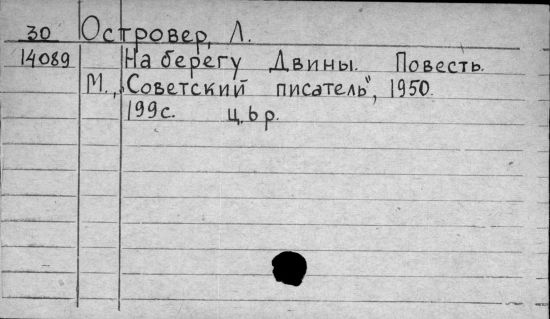 30 Островер, Л.
14089 На берегу Двины. Повесть.
М., „Советский писатель", 1950.
199с. ц. 6 р.